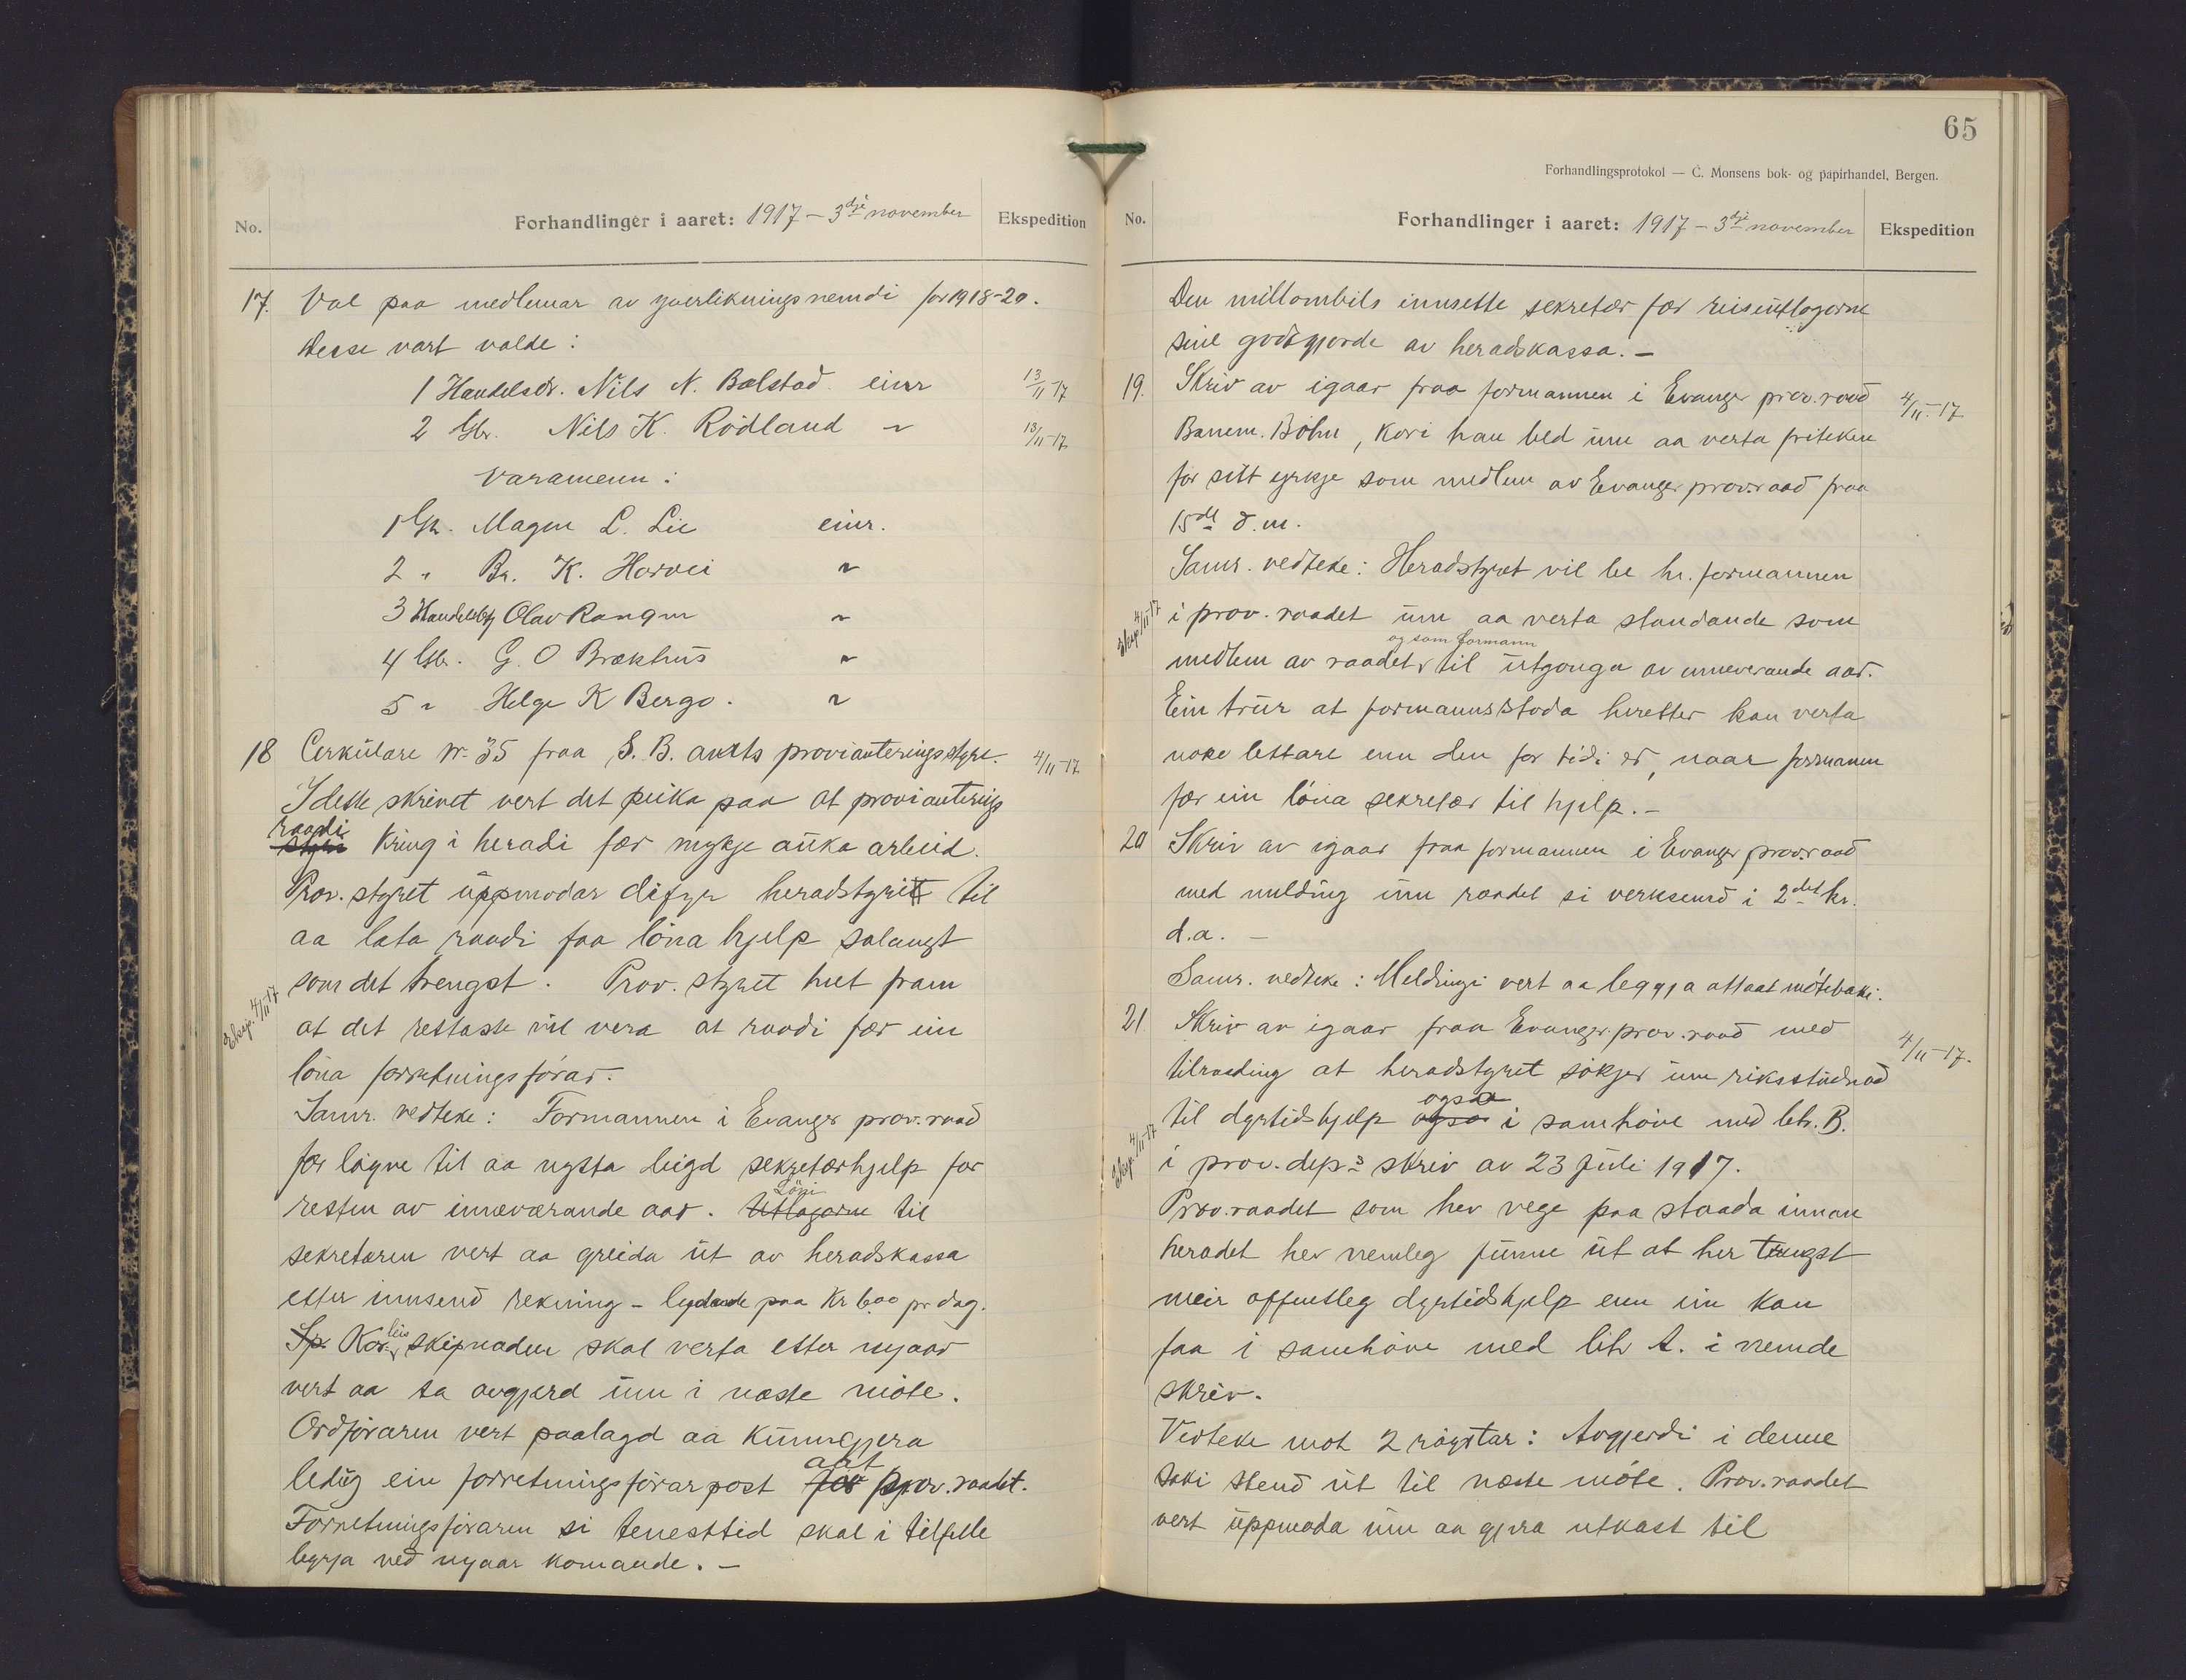 No. Forhandlinger i aaret: 1917 – 3dje november Ekspedition
17. Val paa medlemar av yverlikningsnemdi for 1918-20.
Desse vart valde:
1 Handelsdr. Nils N. Bolstad einr 13/11-17
2 Gbr. Nils K. Rödland " 13/11-17
Varamenn:
1 Gbr. Magne L. Lie einr.
2 " Br. K. Horvei "
3 Handelsbtj Olav Rongen "
4 Gbr. G. O Brækhus "
5 " Helge K Bergo. "
18 Cerkulare nr. 35 fraa S. B. amts provianteringsstyre. 4/11-17
I dette skrivet vert det peika paa at provianterings
raadi
styri kring i heradi fær mykje auka arbeid.
Prov. styret uppmodar difyr heradstyrit til
aa lata raadi faa löna hjelp solangt
som det trengst. Prov. styret het fram
Eksp. 4/11-17
at det rettaste vil vera at raadi fær ein
löna forretningsförar.
Samr. vedteke: Formannen i Evanger prov. raad
fær löyve til aa nytta leigd sekretærhjelp for
resten av inneværande aar. Utlagorne til
Löni
sekretæren vert aa greida ut av heradskassa
etter innsend rekning – lydande paa Kr 6.00 pr dag.
Sp. Kor skipnaden skal verta etter nyaar
leis
vert aa ta avgjerd um i næste möte.
Ordföraren vert paalagd aa kunngjera
ledig ein forretningsförarpost for prov. raadet.
aat
Forretningsföraren si tenesttid skal i tilfelle
byrja ved nyaar komande. –
65
Forhandlingsprotokol — C. Monsens bok- og papirhandel, Bergen.
No. Forhandlinger i aaret: 1917 – 3dje november Ekspedition
Den millombils innsette sekretær fær reiseutlogorne
sine godtgjorde av heradskassa. –
19. Skriv av igaar fraa formannen i Evanger prov. raad 4/11-17
Banem. Böhn, kori han bed um aa verta friteken
for sitt yrkje som medlem av Evanger prov. raad fraa
15de d. m.
Samr. vedteke: Heradstyret vil be hr. formannen
Eksp. 4/11-17
i prov. raadet um aa verta standande som
og som formann
medlem av raadet til utgonga av inneverande aar.
Ein trur at formannsstoda heretter kan verta
noko lettare enn den for tidi er, naar formannen
fær ein löna sekretær til hjelp. –
20 Skriv av igaar fraa formannen i Evanger prov. raad
med melding um raadet si verksemd i 2det kv.
d. a. –
Samr. vedteke: Meldingi vert aa leggja attaat möteboki.
21. Skriv av igaar fraa Evanger prov. raad med 4/11-17.
tilraading at heradstyret sökjer um riksstudnad
ogsaa
til dyrtidshjelp ogso i samhöve med litr. B.
Eksp. 4/11-17
i prov. dep:s skriv av 23 juli 1917.
Prov. raadet som hev vege paa stoda innan
heradet hev nemleg funne ut at her trengst
meir offentleg dyrtidshjelp enn ein kan
faa i samhöve med litr A. i nemde
skriv.
Vedteke mot 2 röystar: Avgjerdi i denne
saki stend ut til næste möte. Prov. raadet
vert uppmoda um aa gjera utkast til